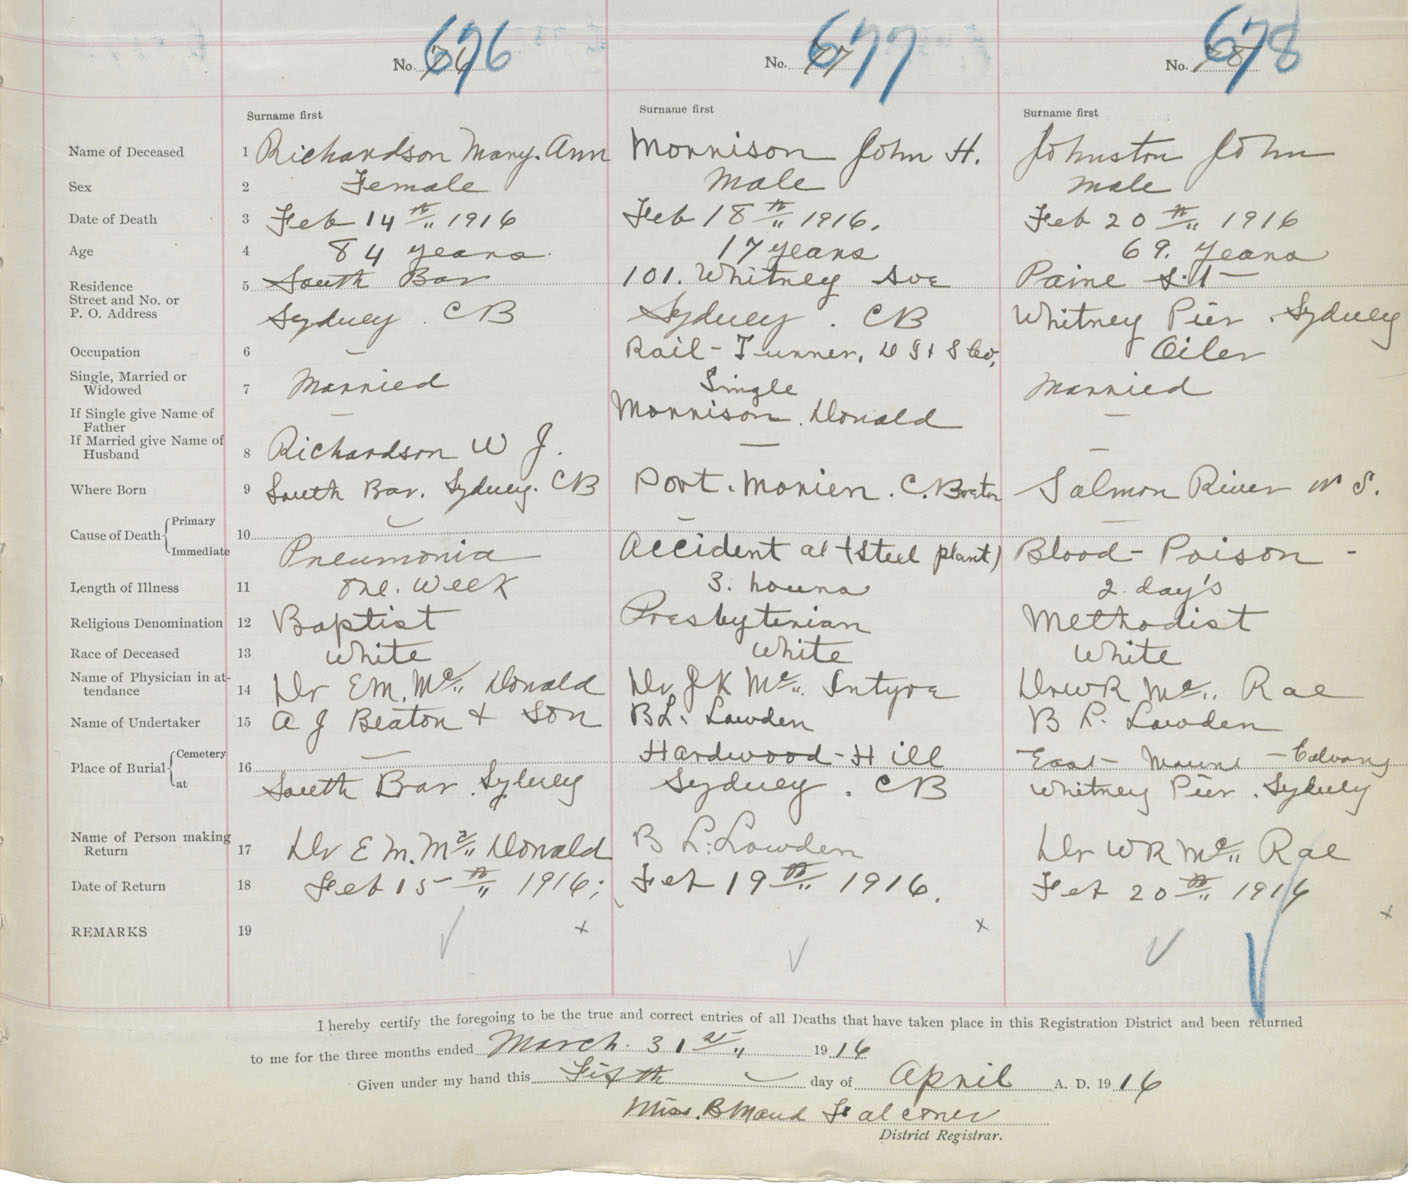 No. 76 676 No. 77 677 No. 78 678
Surname first Surname first Surname first
Name of Deceased 1 Richardson Mary. Ann Morrison John H. Johnston John
Sex 2 Female Male Male
Date of Death 3 Feb 14th 1916 Feb 18th 1916. Feb 20th 1916
Age 4 84 years. 17 years 69. years
Residence 5 South Bar 101. Whitney Ave Paine St
Street and No. or
P. O. Address Sydney. CB Sydney. CB Whitney Pier. Sydney
Occupation 6 — Rail-Turner, D I & S Co, Oiler
Single, Married or
Widowed 7 Married Single Married
If Single give Name of
Father — Morrison. Donald —
If Married give Name of
Husband 8 Richardson W J. — —
Where Born 9 South Bar. Sydney. CB Port. Morien. C. Breton Salmon River N S.
Cause of Death Primary 10 — — —
Immediate Pneumonia Accident at (Steel plant) Blood-Poison -
Length of Illness 11 One. Week 3. hours 2. day's
Religious Denomination 12 Baptist Presbyterian Methodist
Race of Deceased 13 White White White
Name of Physician in at-
tendance 14 Dr E M. Mc Donald Dr J K Mc Intyre Dr W R Mc Rae
Name of Undertaker 15 A J Beaton & Son B L. Lowden B L. Lowden
Place of Burial Cemetery 16 — Hardwood-Hill East- Mount - Calvary
at South Bar. Sydney Sydney. CB Whitney Pier. Sydney
Name of Person making
Return 17 Dr E M. Mc Donald B L. Lowden Dr W R Mc Rae
Date of Return 18 Feb 15th 1916; Feb 19th 1916. Feb 20th 1916
REMARKS 19 x x x
I hereby certify the foregoing to be the true and correct entries of all Deaths that have taken place in this Registration District and been returned
to me for the three months ended March. 31st 1916
Given under my hand this Fifth day of April A. D. 1916
Miss. B Maud Falconer
District Registrar.